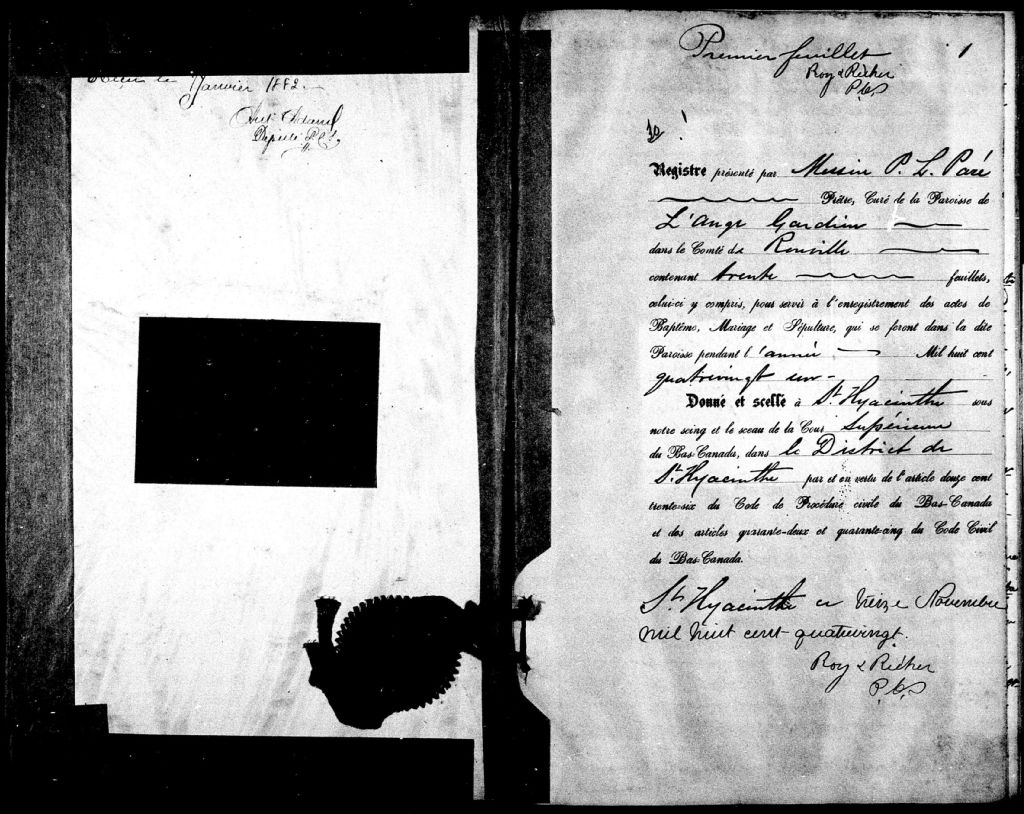 le Janvier 1882.
Député P.C.S.
Premier feuillet
1
Roy & Richer
P.C.S
Registre présenté par Messire P. L. Paré
Prêtre, Curé de la Paroisse de
L'Ange Gardien
dans le Comté de Rouville
contenant trente feuillets,
celui-ci y compris, pour servir à l'enregistrement des actes de
Baptême, Mariage et Sépulture, qui se feront dans la dite
Paroisse pendant l'année Mil huit cent
quatrevingt un-
Donné et scellé à St Hyacinthe sous
notre seing et le sceau de la Cour Supérieure
du Bas-Canada, dans le District de
St. Hyacinthe par et en vertu de l'article douze cent
trente-six du Code de Procédure civile du Bas-Canada
et des articles quarante-deux et quarante-cinq du Code Civil
du Bas-Canada.
St. Hyacinthe ce treize Novembre
mil huit cent quatrevingt.
Roy & Richer
P.C.S